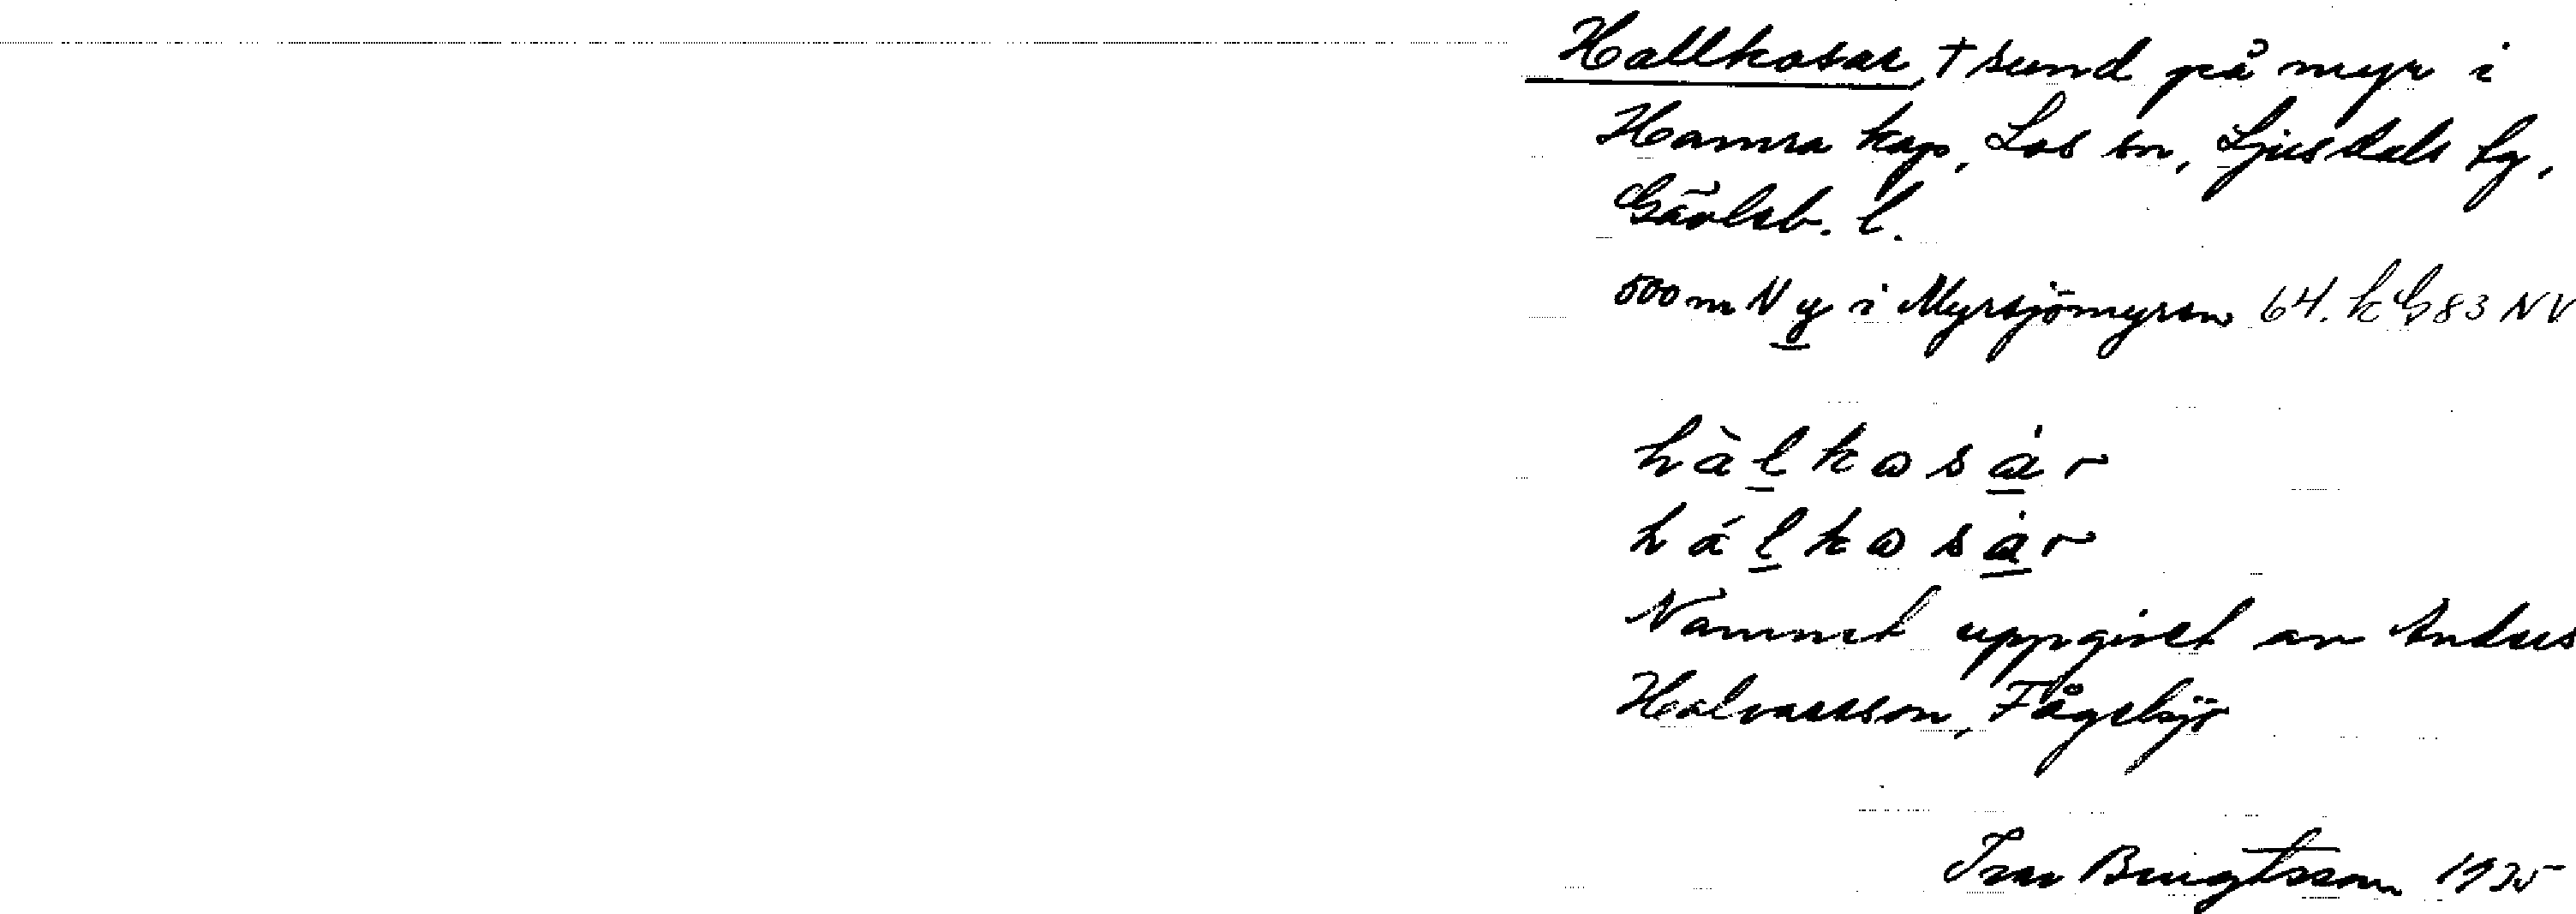 Hallkosar, + sund på myr i
Hamra kap, Los sn, Ljusdals tg,
Gävleb. l.
500 m N g i Myrsjömyren 64. k G 83 NV
hàlkosar
hálkosar
Namnet uppgivet av Andreas
Halvarsson, Fågelsjö
Ivar Bengtsson 1935